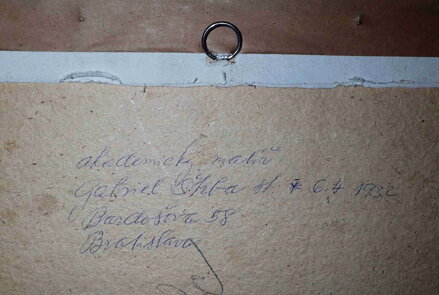 akademický maliar
Gabriel Štrba st. * 6.4 1932
Bardošova 58
Bratislava